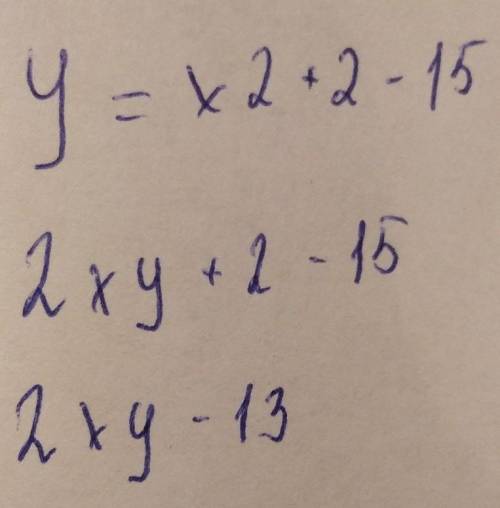 y = x2 + 2 - 15
2xy + 2 - 15
2xy - 13